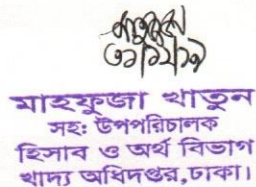 ৩১/১২/১৯
মাহফুজা খাতুন
সহ: উপপরিচালক
হিসাব ও অর্থ বিভাগ
খাদ্য অধিদপ্তর,ঢাকা।